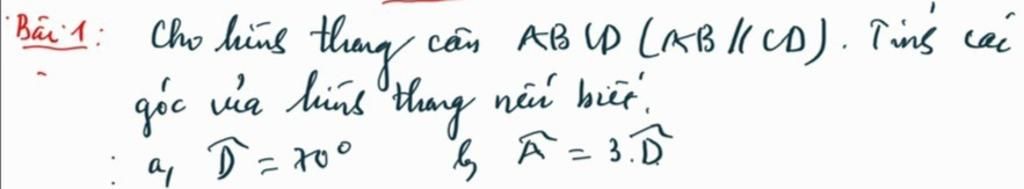 Bài 1: Cho hình thang cân ABCD (AB // CD). Tính các
góc của hình thang nếu biết.
a, D̂ = 70° b, Â = 3.D̂